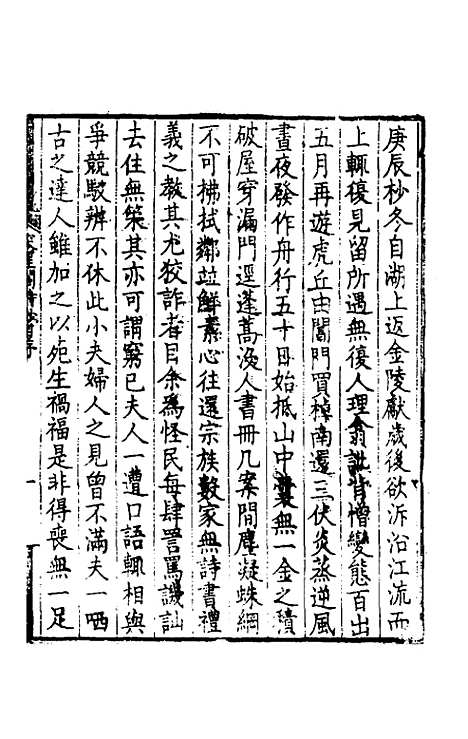 庚辰杪冬自湖上返金陵獻歲後欲泝沿江流而
上輒復見留所遇無復人理翕訿背憎變態百出
五月再遊虎丘由閶門買棹南還三伏炎蒸逆風
晝夜發作舟行五十日始抵山中囊無一金之積
破屋穿漏門逕蓬蒿没人書冊几案間塵凝蛛網
不可拂拭鄰竝鮮素心往還宗族數家無詩書禮
義之教其尤狡詐者目余為怪民每肆詈罵譏訕
去住無策其亦可謂窮已夫人一遭口語輒相與
爭競駁辨不休此小夫婦人之見曾不滿夫一哂
古之達人雖加之以死生禍福是非得喪無一足